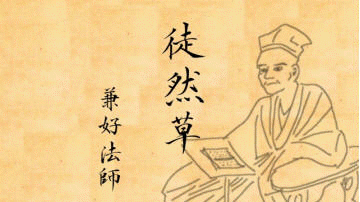 徒然草
兼好法師